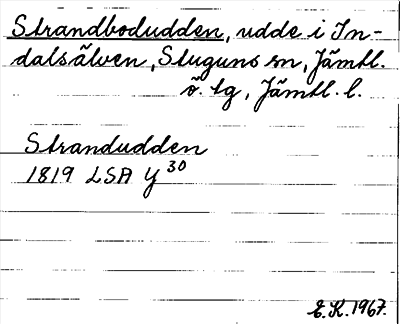 Strandbodudden, udde i In-
dalsälven, Stuguns sn, Jämtl.
ö. tg, Jämtl. l.
Strandudden
1819 LSA Y 30
E.K. 1967.